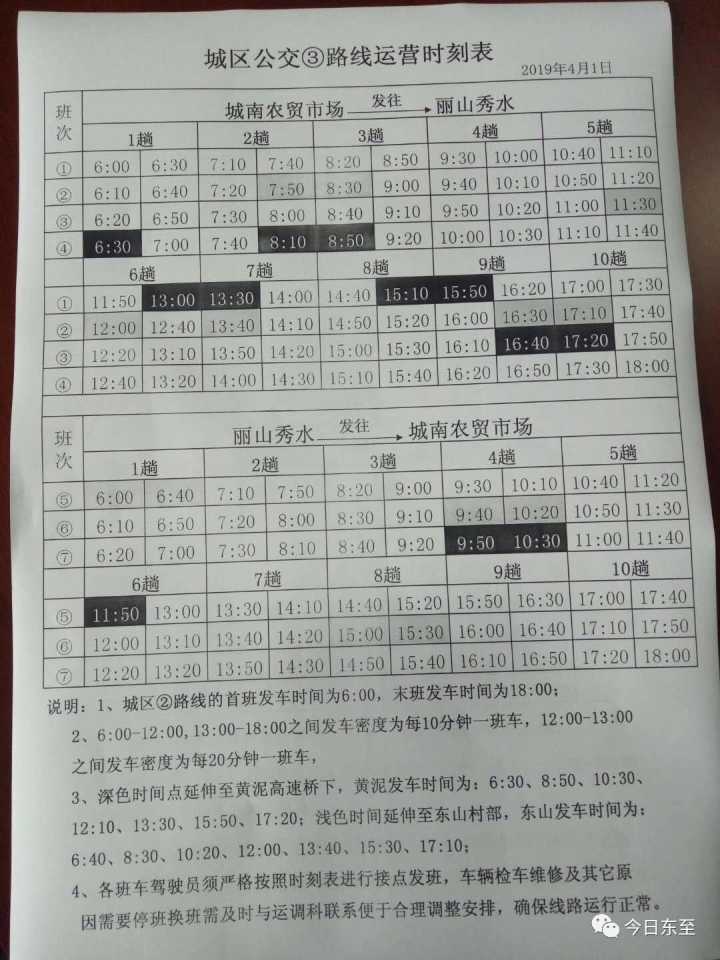 城区公交③路线运营时刻表
2019年4月1日
班次 城南农贸市场 发往 丽山秀水
1趟 2趟 3趟 4趟 5趟
① 6:00 6:30 7:10 7:40 8:20 8:50 9:30 10:00 10:40 11:10
② 6:10 6:40 7:20 7:50 8:30 9:00 9:40 10:10 10:50 11:20
③ 6:20 6:50 7:30 8:00 8:40 9:10 9:50 10:20 11:00 11:30
④ 6:30 7:00 7:40 8:10 8:50 9:20 10:00 10:30 11:10 11:40
6趟 7趟 8趟 9趟 10趟
① 11:50 13:00 13:30 14:00 14:40 15:10 15:50 16:20 17:00 17:30
② 12:00 12:40 13:40 14:10 14:50 15:20 16:00 16:30 17:10 17:40
③ 12:20 13:10 13:50 14:20 15:00 15:30 16:10 16:40 17:20 17:50
④ 12:40 13:20 14:00 14:30 15:10 15:40 16:20 16:50 17:30 18:00
班次 丽山秀水 发往 城南农贸市场
1趟 2趟 3趟 4趟 5趟
⑤ 6:00 6:40 7:10 7:50 8:20 9:00 9:30 10:10 10:40 11:20
⑥ 6:10 6:50 7:20 8:00 8:30 9:10 9:40 10:20 10:50 11:30
⑦ 6:20 7:00 7:30 8:10 8:40 9:20 9:50 10:30 11:00 11:40
6趟 7趟 8趟 9趟 10趟
⑤ 11:50 13:00 13:30 14:10 14:40 15:20 15:50 16:30 17:00 17:40
⑥ 12:00 13:10 13:40 14:20 15:00 15:30 16:00 16:40 17:10 17:50
⑦ 12:20 13:20 13:50 14:30 15:10 15:40 16:10 16:50 17:20 18:00
说明：1、城区②路线的首班发车时间为6:00，末班发车时间为18:00；
2、6:00-12:00,13:00-18:00之间发车密度为每10分钟一班车，12:00-13:00
之间发车密度为每20分钟一班车，
3、深色时间点延伸至黄泥高速桥下，黄泥发车时间为：6:30、8:50、10:30、
12:10、13:30、15:50、17:20；浅色时间延伸至东山村部，东山发车时间为：
6:40、8:30、10:20、12:00、13:40、15:30、17:10；
4、各班车驾驶员须严格按照时刻表进行接点发班，车辆检车维修及其它原
因需要停班换班需及时与运调科联系便于合理调整安排，确保线路运行正常。
今日东至